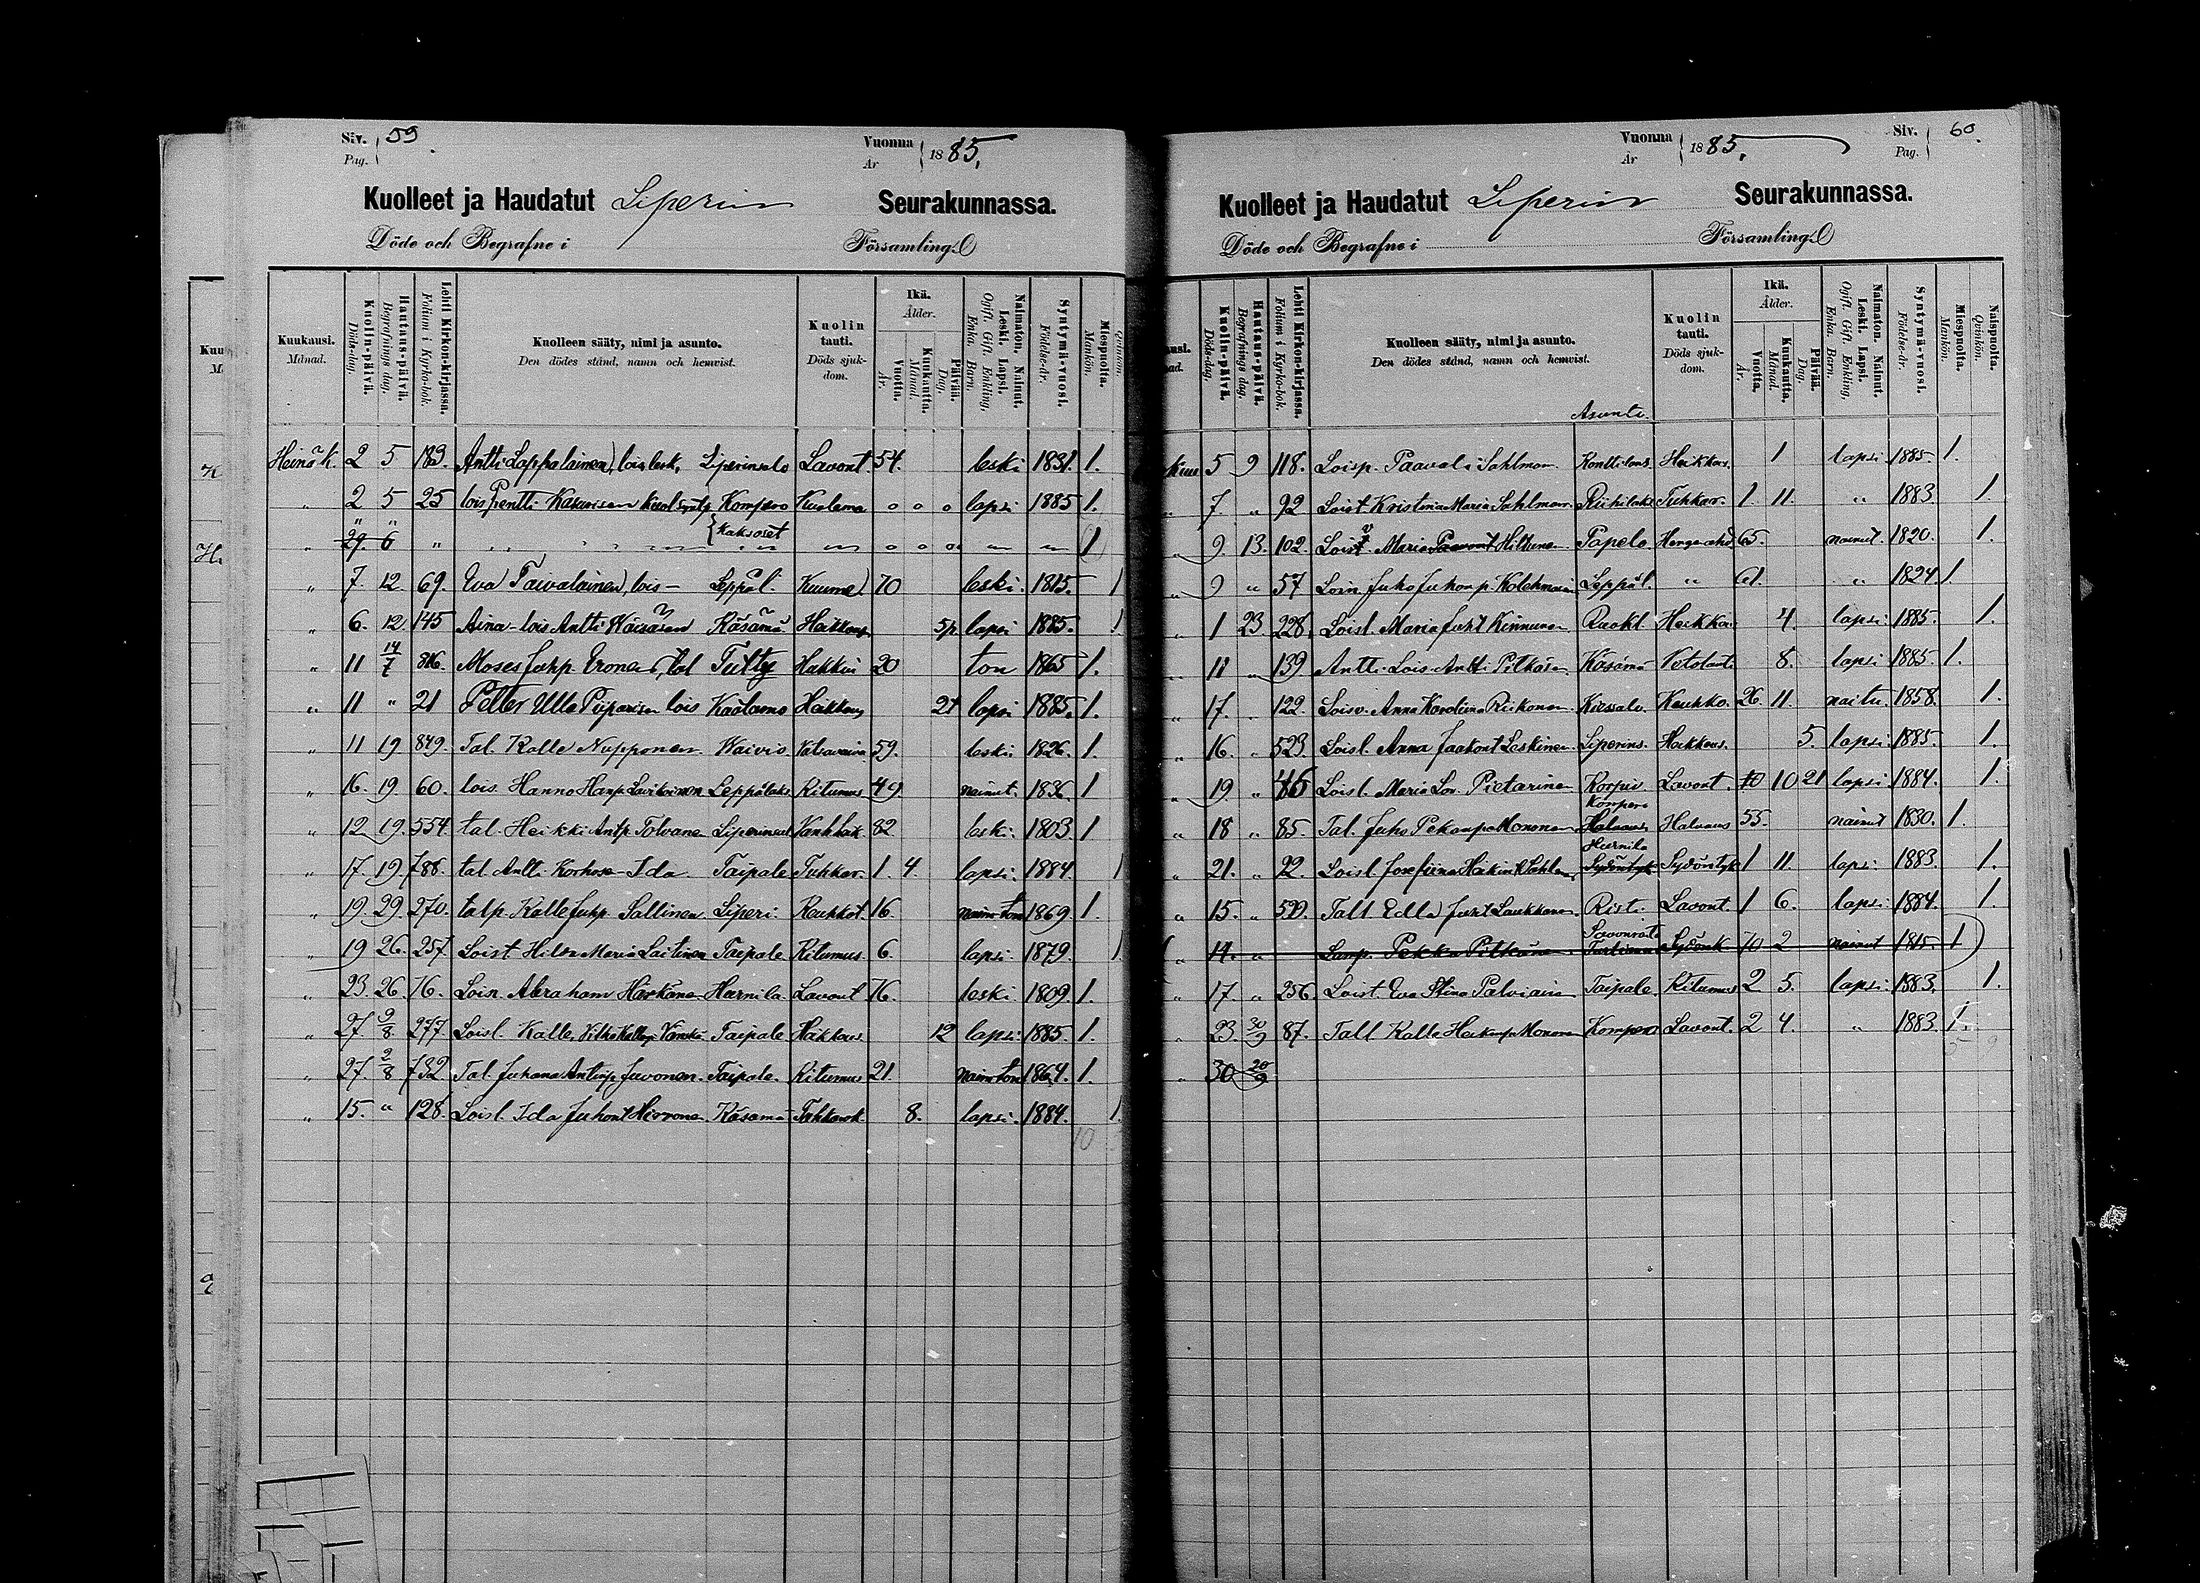 Siv. Pag. 59.
Vuonna År 1885.
Kuolleet ja Haudatut Liperin Seurakunnassa.
Döde och Begrafne i Församling.
Kuukausi. Månad.
Kuolin-päivä. Döds-dag.
Hautaus-päivä. Begrafnings dag.
Lehti Kirkon-kirjassa. Folium i Kyrko-bok.
Kuolleen sääty, nimi ja asunto. Den dödes stånd, namn och hemvist.
Kuolin tauti. Döds sjuk-dom.
Ikä. Ålder.
Vuotta. År.
Kuukautta. Månad.
Päivää. Dag.
Naimaton. Nainut. Leski. Lapsi. Ogift. Gift. Enkling, Enka. Barn.
Syntymä-vuosi. Födelse-år.
Miespuolta. Mankön.
Qvinkön.
Heinäk. 2 5 183. Antti Lappalainen, lois lesk, Liperinsalo Lavant. 54. leski 1831. 1.
" 2 5 25 lois Pentti Kasurisen Kompero Kuolema 0 0 0 lapsi 1885 1.
" 29. 6 " kaksoset 0 0 0 1
" 7. 12 69. Eva Taivalainen, lois - Leppäl. Kuume 70 leski. 1815. 1
" 6. 12 145 Aina - lois Antti Räsäsen Käsämä Hakkaus lapsi 1885. 1
" 11 14/7 816. Moses Juhp. Eronen, tal Tutty Hakkaus 20 ton 1865 1.
" 11 " 21 Petter Ulla Piiparisen lois Kaatamo Hakkaus 21 lapsi 1885. 1.
" 11 19 849. Tal. Kalle Nupponen Vaivio Vatsavaiva 59. leski 1826. 1.
" 16. 19. 60. lois. Hanno Hanp. Laukkanen Leppälaks Kitumus 49. nainut. 1836. 1
" 12 19. 554. tal. Heikki Antp. Tolvanen Liperinsal Vanhuus 82 leski. 1803 1
" 17. 19. 786. tal. Antti Korhosen Ida Taipale Tuhkar. 1. 4. lapsi. 1884. 1
" 19. 29. 270. talp. Kalle Juhp. Sallinen Liperi. Keuhkot. 16. naimton 1869. 1.
" 19 26. 257. Loist. Hilda Maria Laitinen Taipale Kitumus. 6. lapsi. 1879. 1.
" 23. 26. 76. Loisn. Abraham Härkänen Harnila Lavant 76. leski 1809. 1.
" 27. 2/8 277 Loisl. Kalle Taipale Hakkaus. 12 lapsi. 1885. 1.
" 27. 2/8 732. Tal. Juhana Anttip. Juvonen. Taipale. Kitumus 21. naimton 1864. 1.
" 15. " 128. Loisl. Ida Juhont Hirvonen Käsämä Tuhkarok. 8. lapsi. 1884. 1.
10
Vuonna År 1885.
Siv. Pag. 60.
Kuolleet ja Haudatut Liperin Seurakunnassa.
Döde och Begrafne i Församling.
Kuolin-päivä. Döds-dag.
Hautaus-päivä. Begrafnings dag.
Lehti Kirkon-kirjassa. Folium i Kyrko-bok.
Kuolleen sääty, nimi ja asunto. Den dödes stånd, namn och hemvist.
Asunto.
Kuolin tauti. Döds sjuk-dom.
Ikä. Ålder.
Vuotta. År.
Kuukautta. Månad.
Päivää. Dag.
Naimaton. Nainut. Leski. Lapsi. Ogift. Gift. Enkling, Enka. Barn.
Syntymä-vuosi. Födelse-år.
Miespuolta. Mankön.
Naispuolta. Qvinkön.
5 9 118. Loisp. Paavali Sahlman Konttilans. Hakkaus. 1 lapsi. 1885. 1.
" 7. " 92 Loist Kristina Maria Sahlman Riihilaks Tuhkar. 1. 11. " 1883 1.
" 9. 13. 102. Maria Paavont Hiltunen Papelo Hengenahd 65. nainut. 1820. 1.
" 9 " 57 Loisn Juho Juhonp. Kolehmainen Leppäl. " 61. " 1824 1.
" 1 23 228. Loisl. Maria Juht Kinnunen Ruokl. Hakkaus 4. lapsi 1885. 1.
" 11 " 139 Antti Lois Antti Pitkäsen Käsämä Vetotauti 8. lapsi. 1885. 1.
" 17. " 122. Loisv. Anna Karolina Riikonen. Kiessalo. Keuhko. 26. 11. naitu. 1858. 1.
" 16. " 523. Loisl. Anna Jaakont Leskinen Liperins. Hakkaus. 5. lapsi. 1885. 1.
" 19. " 46 Loisl. Maria Lov. Pietarinen Korpiv. Lavant. 10 10 21 lapsi. 1884. 1.
" 18 " 85. Tal. Juho Pekanp. Mononen Kompero Halvaus 55. nainut 1830. 1.
" 21. " 92. Loisl Josefiina Heikint Sahlman Harnila Sydöntyk. 1 11. lapsi. 1883. 1.
" 15. " 599. Tall Edla Juht Laukkanen. Risti. Lavant. 1 6. lapsi. 1884. 1.
" 14. " Lamp. Pekka Pitkänen Savonranta Sydönk. 70 2 nainut 1815. 1
" 17. " 256 Loist. Eva Stina Palviain Taipale. Kitumus 2 5. lapsi. 1883. 1.
" 23. 30/9 87. Tall. Kalle Heikinp. Mononen Kompero Lavant. 2 4. " 1883. 1.
5 9
" 30 20/9